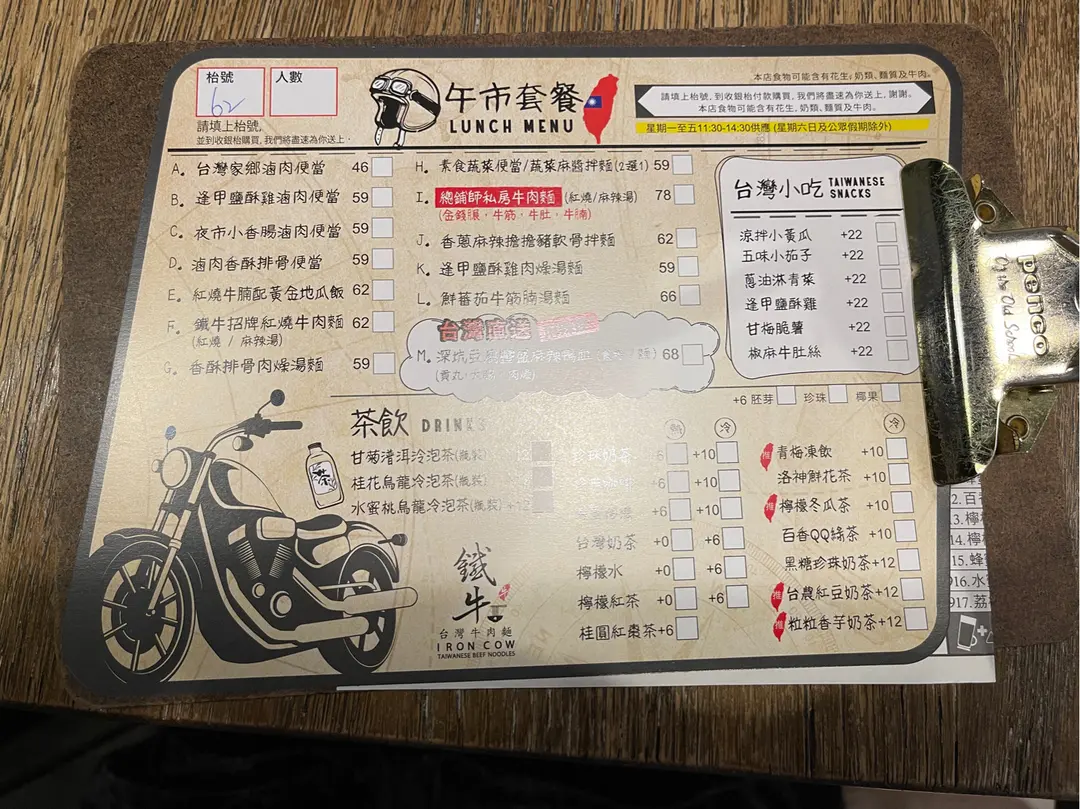 枱號
人數
62
請填上枱號,
並到收銀枱購買, 我們將盡速為你送上。
午市套餐
LUNCH MENU
本店食物可能含有花生, 奶類, 麵質及牛肉。
請填上枱號, 到收銀枱付款購買, 我們將盡速為你送上, 謝謝。
本店食物可能含有花生, 奶類, 麵質及牛肉。
星期一至五11:30-14:30供應 (星期六日及公眾假期除外)
A. 台灣家鄉滷肉便當 46
B. 逢甲鹽酥雞滷肉便當 59
C. 夜市小香腸滷肉便當 59
D. 滷肉香酥排骨便當 59
E. 紅燒牛腩配黃金地瓜飯 62
F. 鐵牛招牌紅燒牛肉麵 62
(紅燒 / 麻辣湯)
G. 香酥排骨肉燥湯麵 59
H. 素食蔬菜便當/蔬菜麻醬拌麵(2選1) 59
I. 總鋪師私房牛肉麵 (紅燒/麻辣湯) 78
(金錢𦟌,牛筋,牛肚,牛腩)
J. 香蔥麻辣擔擔豬軟骨拌麵 62
K. 逢甲鹽酥雞肉燥湯麵 59
L. 鮮蕃茄牛筋腩湯麵 66
台灣直送
M. 深坑 麻辣 麵) 68
(貢丸
台灣小吃 TAIWANESE SNACKS
涼拌小黃瓜 +22
五味小茄子 +22
蔥油淋青菜 +22
逢甲鹽酥雞 +22
甘梅脆薯 +22
椒麻牛肚絲 +22
+6 胚芽 珍珠 椰果
茶飲 DRINKS
甘菊潽洱冷泡茶(瓶裝)
桂花烏龍冷泡茶(瓶裝)
水蜜桃烏龍冷泡茶(瓶裝) +12
茶
熱 冷
珍珠奶茶 +6 +10
+6 +10
+6 +10
台灣奶茶 +0 +6
檸檬水 +0 +6
檸檬紅茶 +0 +6
桂圓紅棗茶+6
冷
推 青梅凍飲 +10
洛神鮮花茶 +10
推 檸檬冬瓜茶 +10
百香QQ綠茶 +10
黑糖珍珠奶茶+12
推 台農紅豆奶茶+12
推 粒粒香芋奶茶+12
鐵牛
台灣牛肉麵
IRON COW
TAIWANESE BEEF NOODLES
penco
13.檸
14.檸
15.蜂
916.水
917.荔